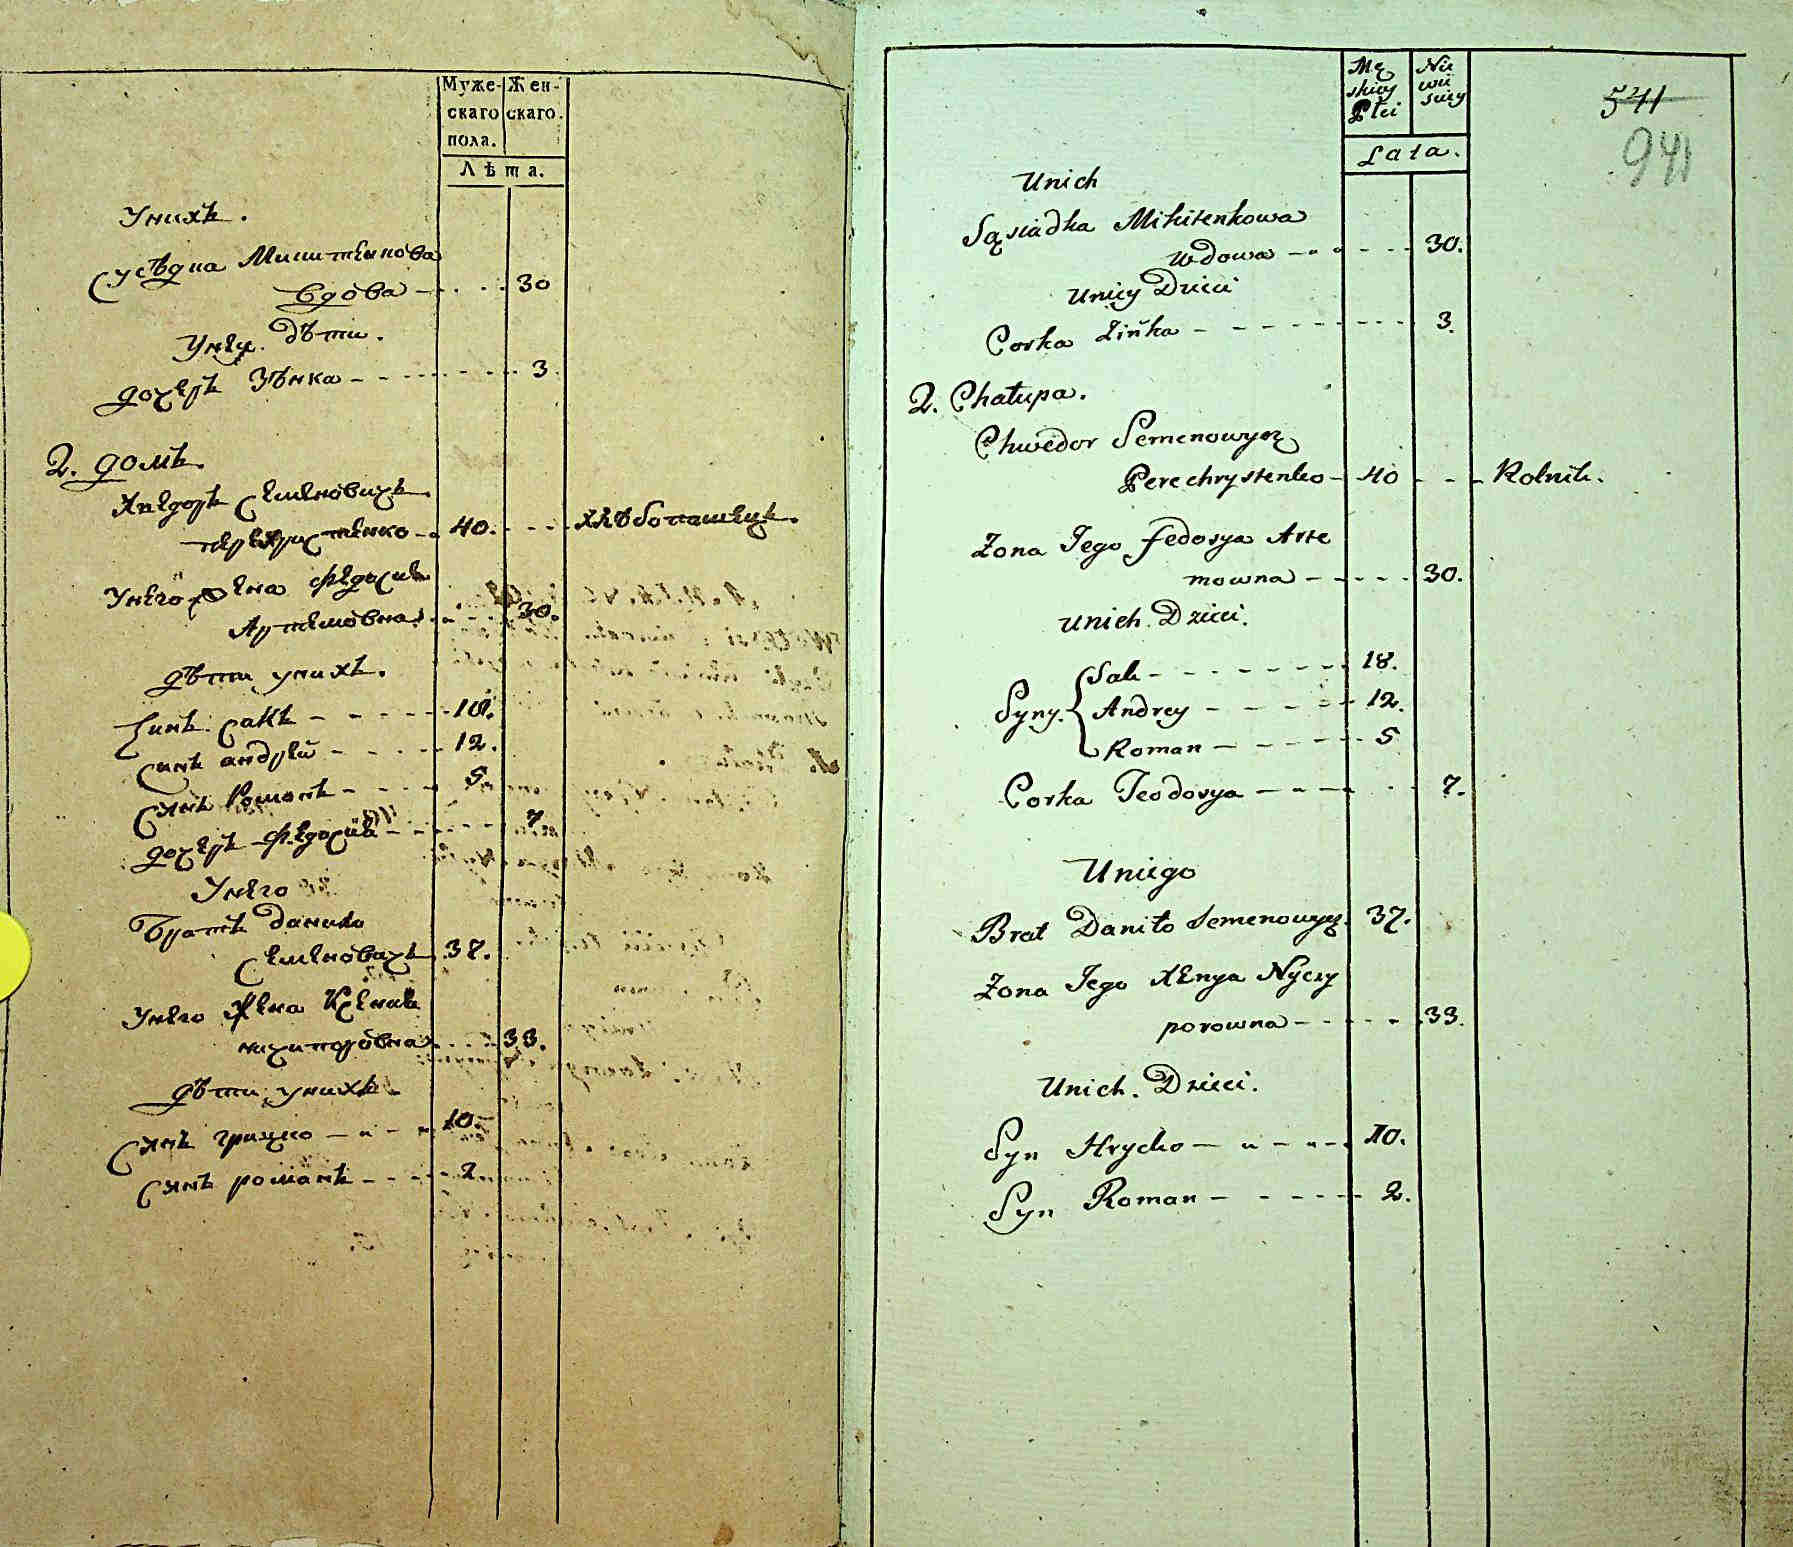 Муже- Жен-
скаго скаго.
пола.
Лѣта.
Унихъ.
Сусѣдка Микитенкова
вдова 30
Унеи дѣти.
дочеръ Зѣнка 3
2. домъ.
Хведоръ Семеновичъ
перехристенко 40. хлѣбопашецъ.
Унего жена Федосия
Артемовна 30.
дѣти унихъ.
Синъ сакъ 18.
Синъ андрей 12.
Синъ Романъ 5.
дочеръ федосия 7
Унего
Братъ данило
Семеновичъ 37.
Унего жена Ксения
ничипоровна 33.
дѣти унихъ.
Синъ грицко 10.
Синъ романъ 2
Mę Nie
skiey wie
Płci sciey
Lata.
541
941
Unich
Sąsiadka Mikitenkowa
wdowa 30.
Unięy Dzieci
Corka Zińka 3.
2. Chałupa.
Chwedor Semenowycz
Perechrystenko 40 Rolnik.
Zona Jego Fedosya Arte
mowna 30.
Unich Dzieci.
Syny. Sak 18.
Andrey 12.
Roman 5
Corka Teodosya 7.
Uniego
Brat Daniło Semenowycz. 37.
Zona Jego Xenya Nyczy
porowna 33.
Unich. Dzieci.
Syn Hrycko 10.
Syn Roman 2.